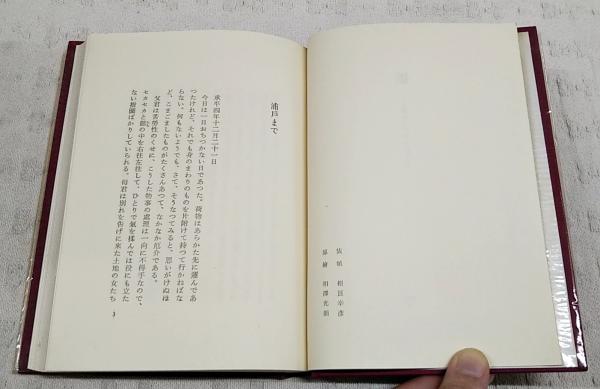 装幀 相澤光朗
扉繪 相澤光朗
浦戸まで
承平四年十二月二十一日
今日は一日おちつかない日であつた。荷物はあらかた先に運んであ
つたけれど、それでも身のまわりのものを片附けて持つて行かねばな
らない。何もないようでも、さて、そうなつてみると、思いがけぬほ
ど、こまごましたものがたくさんあつて、なかなか厄介である。
父君は苦勞性のくせに、こうした物事の處理は一向に不得手なので、
セカセカと館の中を右往左往して、ひとりで氣を揉んでは役にも立た
ない指圖ばかりしていられる。母君は別れを告げに來た土地の女たち
3